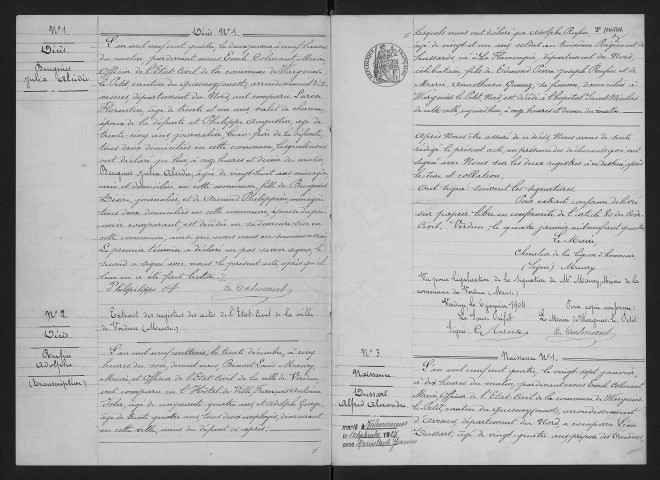 N° 1.
Décès.
Décès N° 1.
L'an mil neuf cent quatre, le deux janvier à neuf heures
du matin, par devant nous Emile Colmant, Maire,
Officier de l'Etat Civil de la commune de Wargnies-
le-Petit, canton du Quesnoy, arrondissement d'A-
vesnes, département du Nord, ont comparu
Florentin, âgé de trente et un ans, valet de charrue,
époux de la défunte et Philippe Augustin, âgé de
trente-cinq ans, journalier, beau-frère de la défunte,
tous deux domiciliés en cette commune, lesquels nous
ont déclaré que hier, à onze heures et demie du matin,
Julia Alcidie, âgée de vingt-huit ans, ménagère,
née et domiciliée en cette commune, fille de
Désiré, journalier, et de Armand Philippine, ménagère,
tous deux domiciliés en cette commune, épouse du pre-
mier comparant, est décédée en sa demeure sise en
cette commune, ainsi que nous nous en sommes assuré.
Le premier témoin a déclaré ne pas savoir signer, le
second a signé avec nous le présent acte, après qu'il
leur en a été fait lecture.
E. Colmant
N° 2.
Décès.
Rufin
Adolphe
(Transcription)
Extrait des registres des actes de l'Etat Civil de la ville
de Verdun (Meuse).
L'an mil neuf cent trois, le trente décembre, à cinq
heures du soir, devant nous, Benoit Louis Maury,
Maire et Officier de l'Etat Civil de la ville de Verdun,
ont comparu en l'Hôtel de Ville, François Antoine
âgé de cinquante-quatre ans et Adolphe
âgé de trente-quatre ans, tous deux employés, demeurant
en cette ville, amis du défunt ci-après,
2e feuillet.
lesquels nous ont déclaré que Adolphe Rufin,
âgé de vingt et un ans, soldat au troisième Régiment de
hussards, né à La Flamengrie, département du Nord,
célibataire, fils de Edouard Pierre Joseph Rufin et de
Marie Anasthasie sa femme, domiciliés à
Wargnies-le-Petit, Nord, est décédé à l'hôpital Saint-Nicolas
de cette ville, aujourd'hui, à onze heures et demie du matin.
Après Nous être assuré de ce décès, Nous avons de suite
rédigé le présent acte, en présence des déclarants qui ont
signé avec Nous sur les deux registres à ce destinés, après
lecture et collation.
Ont signé : suivent les signatures.
Pour extrait conforme délivré
sur papier libre en conformité de l'article 80 du Code
Civil. Verdun, le quatre janvier mil neuf cent quatre
Le Maire,
Chevalier de la Légion d'honneur,
(Signé) Maury
Vu pour légalisation de la signature de Mr Maury, Maire de la
commune de Verdun (Meuse).
Verdun, le 6 janvier 1904
Le Sous-Préfet
Pour copie conforme :
Le Maire de Wargnies-le-Petit
E. Colmant
N° 3.
Naissance.
Dussart
Alfred Alexandre.
Marié à
le septembre
avec
Naissance N° 1.
L'an mil neuf cent quatre, le vingt-sept janvier,
à dix heures du matin, par devant nous Emile Colmant,
Maire, Officier de l'Etat Civil de la commune de Wargnies-
le-Petit, canton du Quesnoy, arrondissement
d'Avesnes, département du Nord, a comparu Léon
Dussart, âgé de vingt-quatre ans, préposé des Douanes,